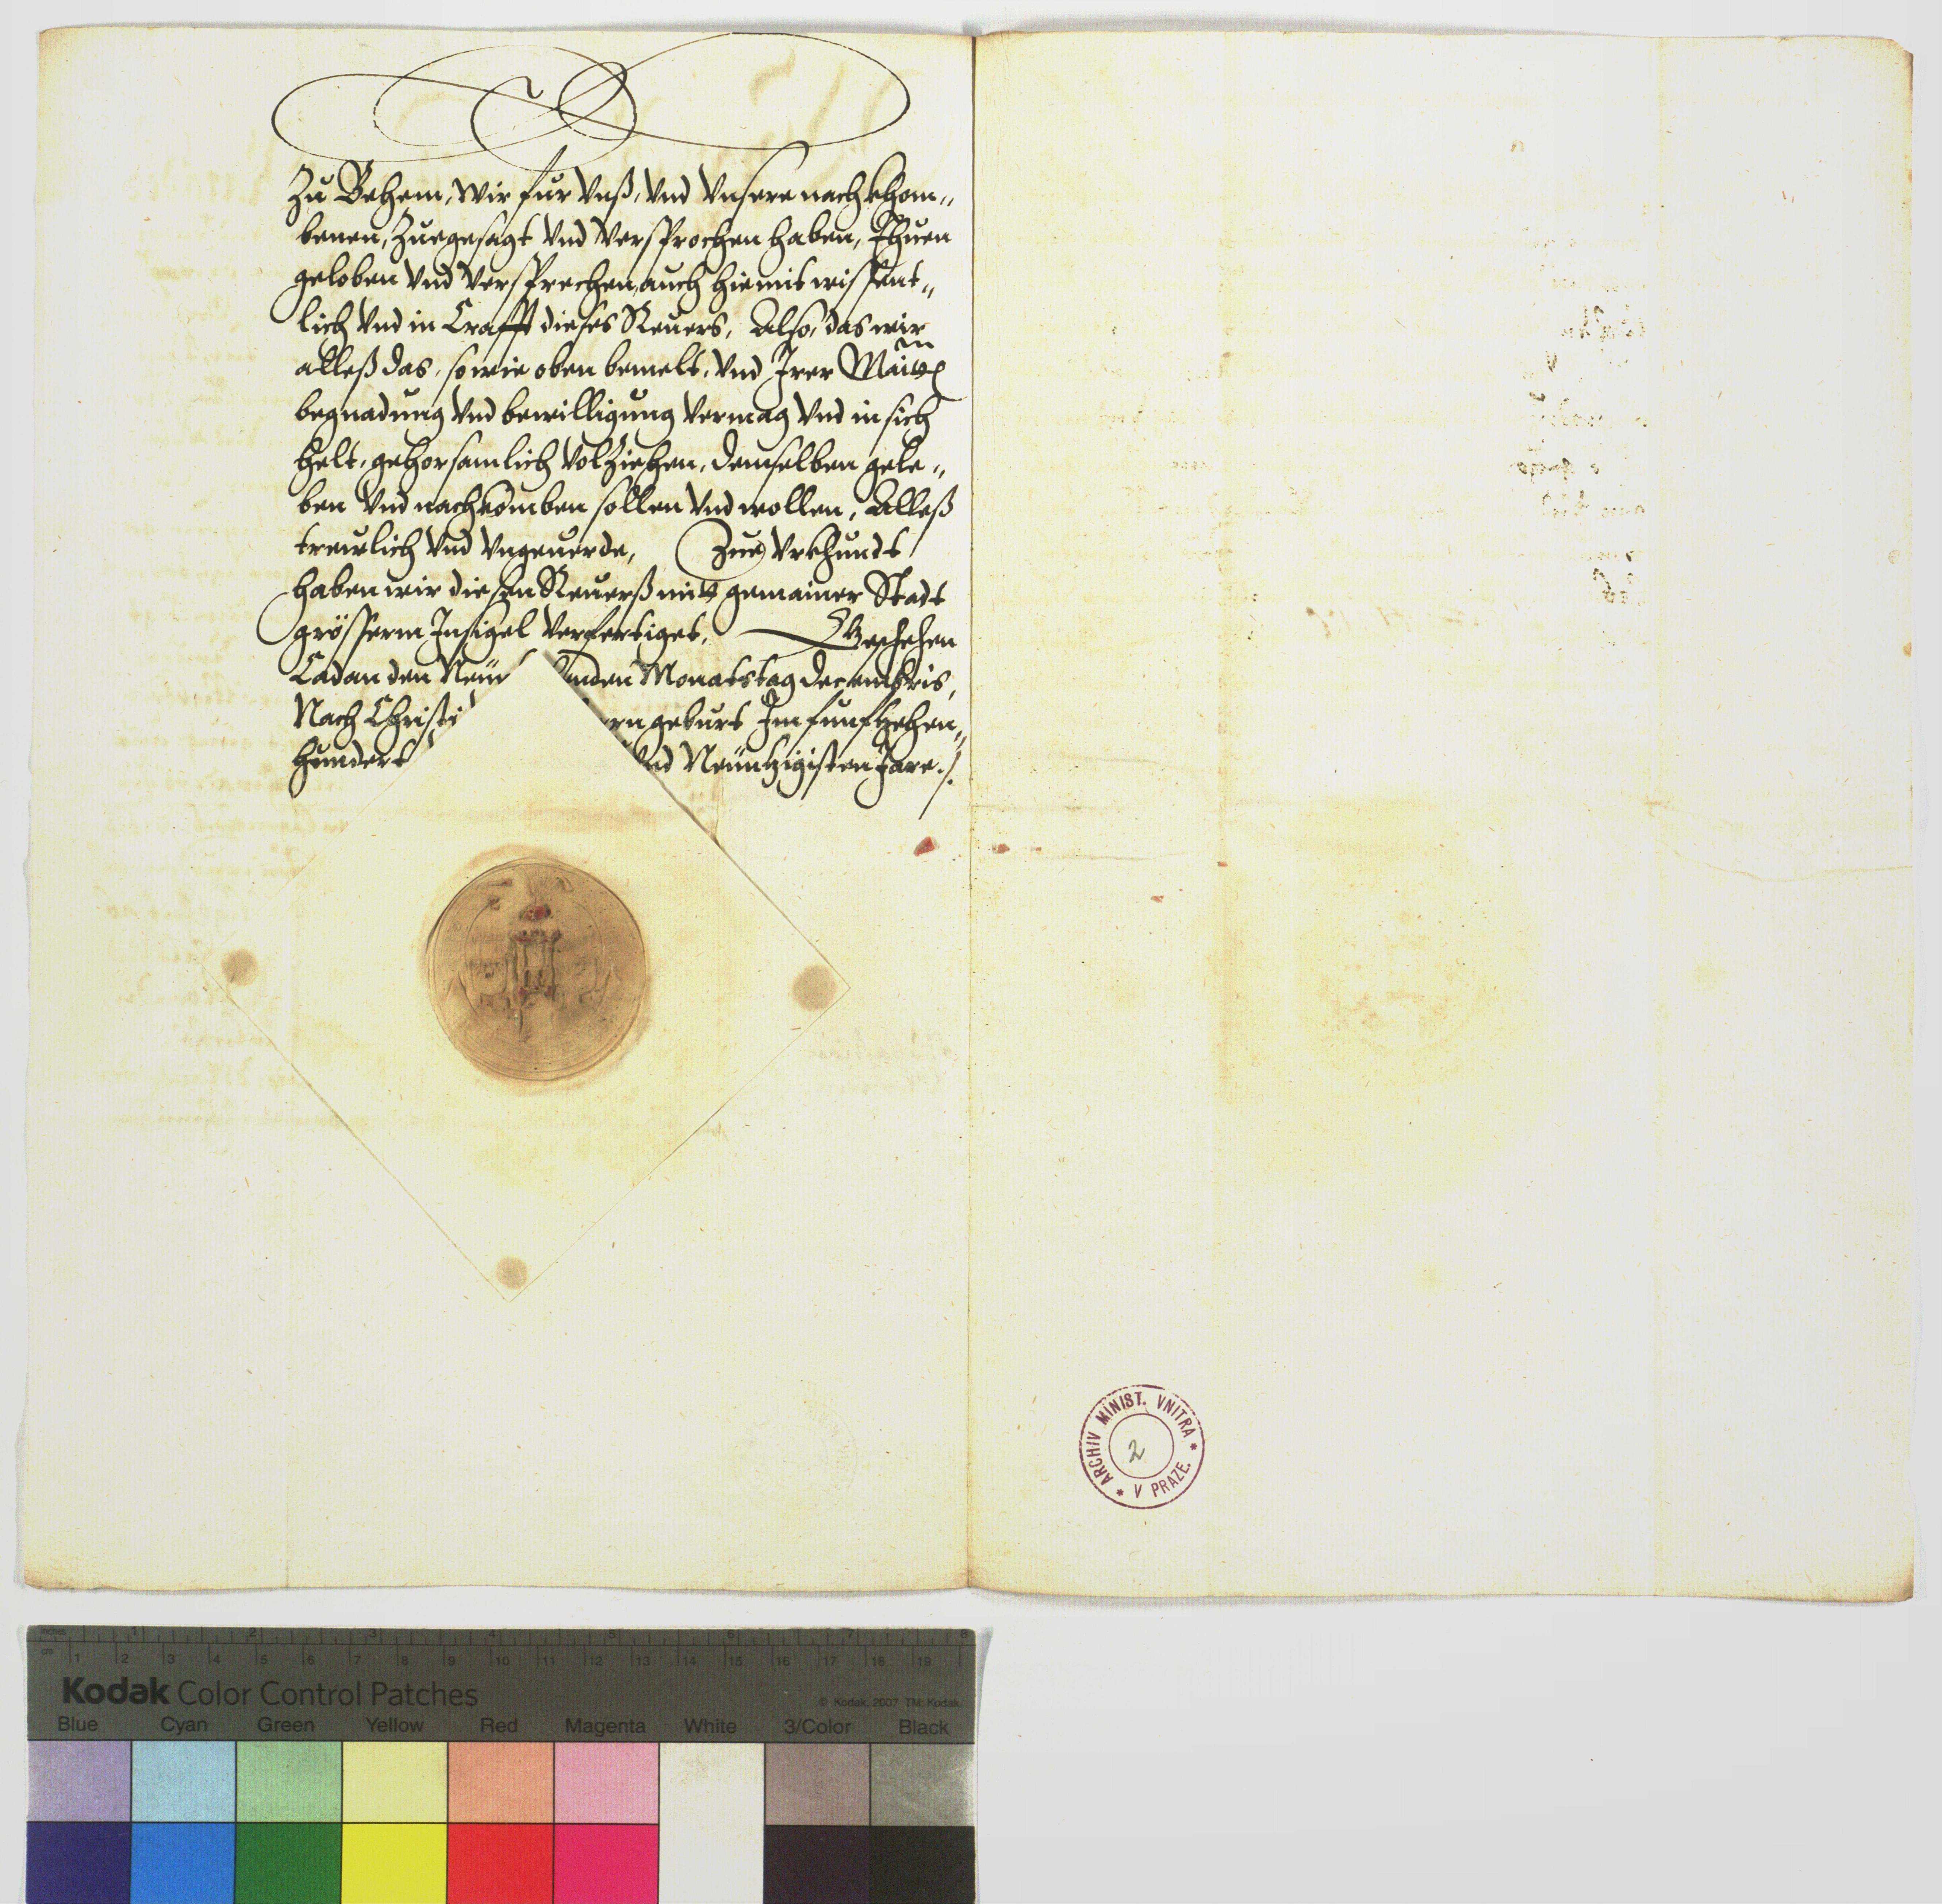 Zu Behem, Wir fur Vnß, Vnd Vnsere nachkhom„
benen, Zuegesagt Vnd Versprochen haben, Thuen
geloben Vnd Versprechen, auch hiemit wissent„
lich Vnd in Crafft dieses Reuers, Also, das wir
alleß das, so wie oben bemelt, Vnd Irer
begnadung Vnd bewilligung Vermag Vnd in sich
helt, gehorsamlich Volziehen, demselben gele„
ben Vnd nachkomben sollen Vnd wollen, Alleß
trewlich Vnd Vngeuerde, Zue Vrkhundt
haben wir diesen Reuerß mitt gemainer Stadt
grösserm Insigel Verfertiget, Geschehen
Cadan den Neün nden Monatstag decembris,
Nach Christi rn geburt Im funfzehen„
hundert Vnd Neünzigisten Jare./.
ARCHIV MINIST. VNITRA * V PRAZE. *
2
Kodak Color Control Patches
© Kodak, 2007 TM: Kodak
Blue Cyan Green Yellow Red Magenta White 3/Color Black